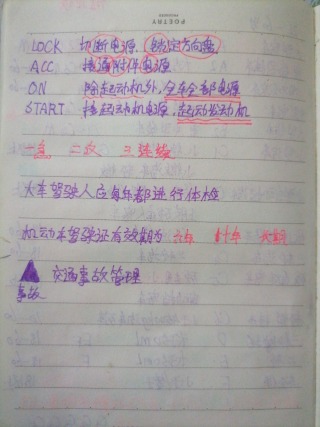 POETRY
LOCK 切断电源,锁定方向盘
ACC 接通附件电源
ON 除起动机外,全车全部电源
START 接起动机电源,起动发动机
一点 二次 三连续
大车驾驶人应每年都进行体检
机动车驾驶证有效期为 六年 十年 长期
交通事故管理
事故